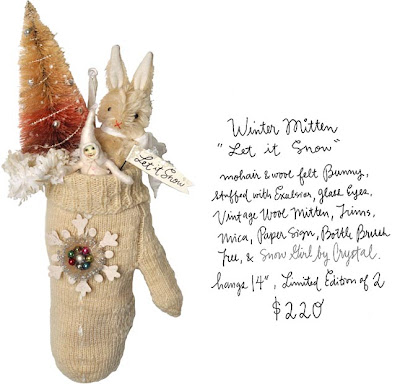 Let it Snow
Winter Mitten
"Let it Snow"
mohair & wool felt Bunny,
stuffed with Excelsior, glass Eyes,
Vintage Wool Mitten, Trims,
Mica, Paper Sign, Bottle Brush
Tree, & Snow Girl by Crystal.
hangs 14", Limited Edition of 2
$220